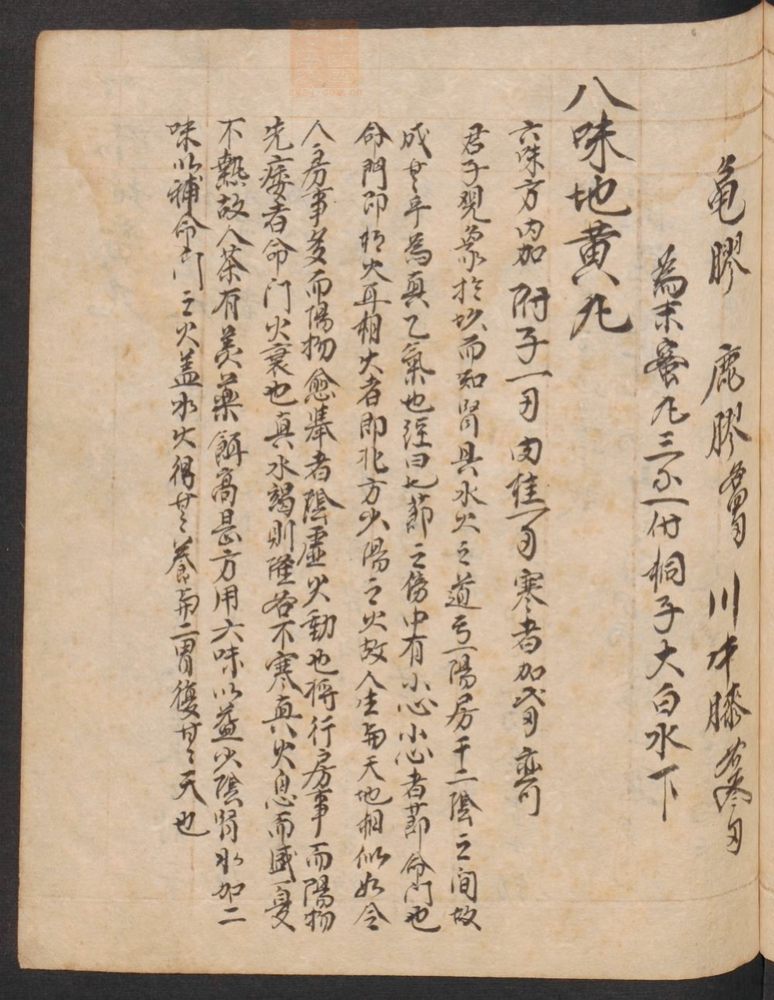 黾膠 鹿膠 各四両 川牛膝 各叁両
為末蜜凡三不一付桐子大白水下
八味地黄凡
六味方内加附子一両肉桂一両寒者加弐両亦可
君子观象於坎而知腎具水火之道焉一陽居于二陰之间故
成其乎為真乙氣也經曰七莭之傍中有小心小心者莭命门也
命門即相火耳相火者即北方少陽之火故人生與天地相似如今
人房事多而陽物愈举者陰虛火動也将行房事而陽物
先痿者命门火衰也真水竭則隆冬不寒真火息而盛夏
不熱故人荼有羙藥餌高甚方用六味以益少陰腎水加二
味以補命门之火盖水火得其養而二胃復其天也